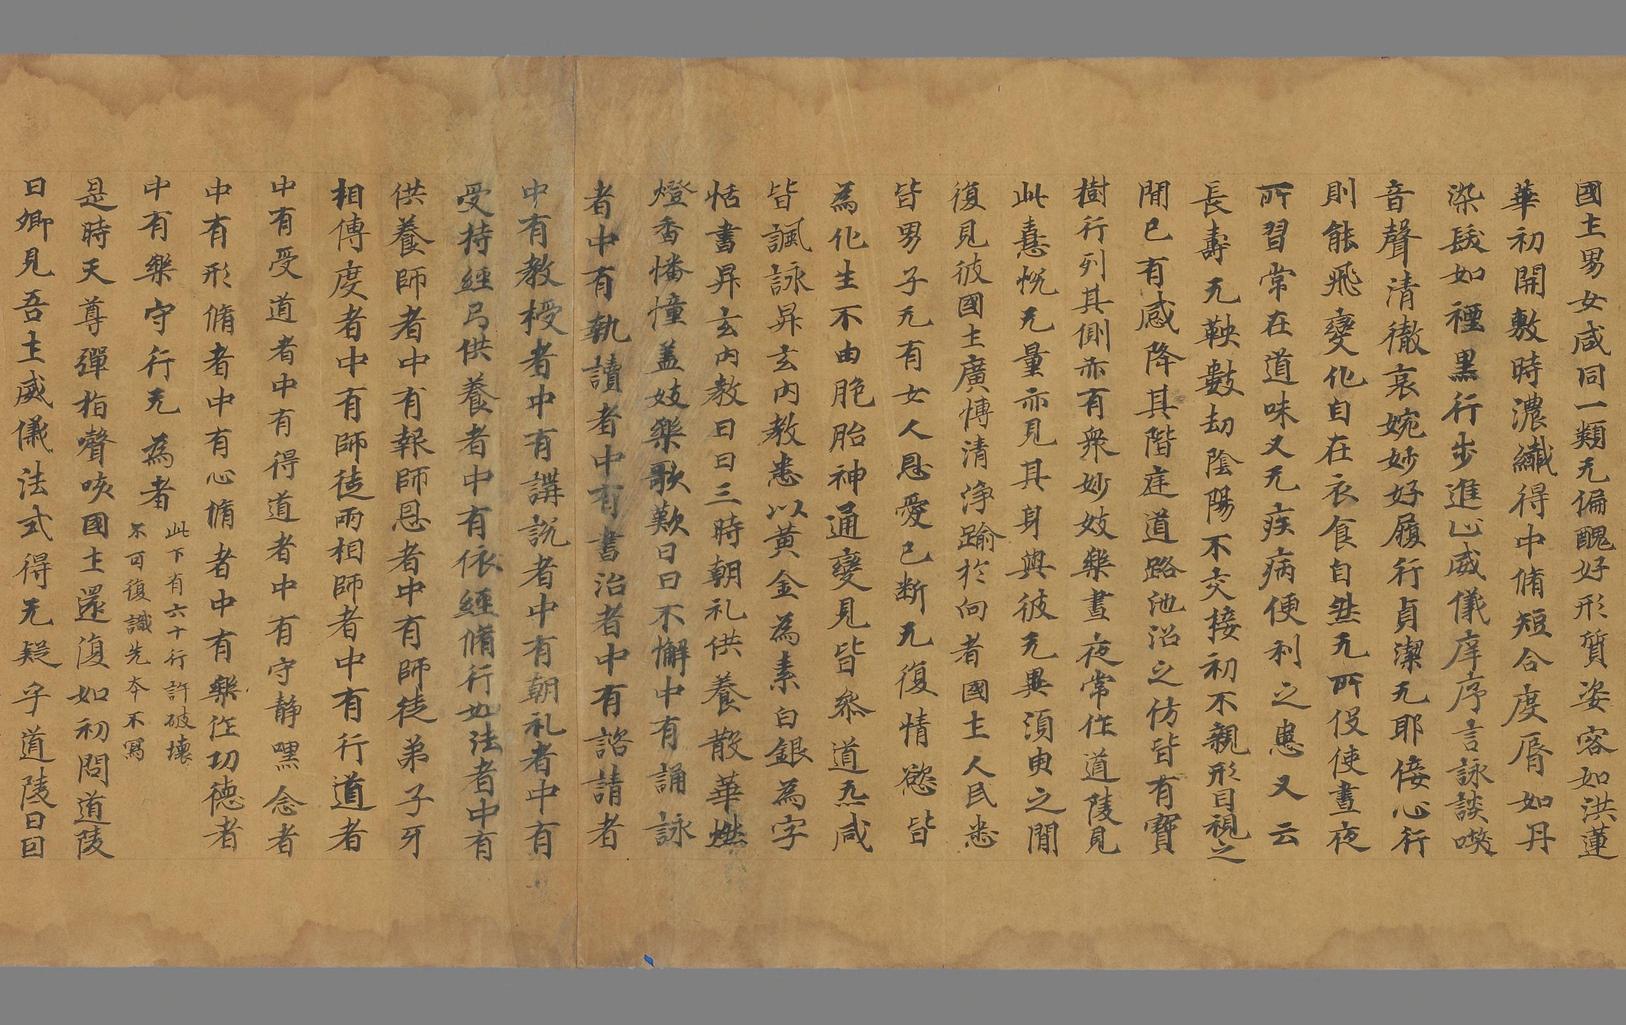 國土男女咸同一類无偏醜好形質姿容如洪蓮
華初開敷時濃纖得中脩短合度脣如丹
染髮如禋黑行步進止威儀庠序言詠談嘆
音聲清徹哀婉妙好履行貞潔无耶倿心行
則能飛變化自在衣食自然无所伇使晝夜
所習常在道味又无疾病便利之患又云
長壽无鞅數劫陰陽不交接初不親形目視之
閒已有感降其階庭道路池沼之仿皆有寶
樹行列其側亦有衆妙妓樂晝夜常作道陵見
此憙悦无量亦見其身與彼无異湏臾之閒
復見彼國土廣愽清淨踰於向者國土人民悉
皆男子无有女人恩愛已断无復情慾皆
為化生不由胞胎神通變見皆叅道炁咸
皆諷詠昇玄內教悉以黄金為素白銀為字
恬書昇玄內教日日三時朝礼供養散華燃
燈香幡憧盖妓樂歌歎日日不懈中有誦詠
者中有執讀者中有書治者中有諮請者
中有教授者中有講說者中有朝礼者中有
受持經弓供養者中有依經脩行如法者中有
供養師者中有報師恩者中有師徒弟子牙
相傳度者中有師徒兩相師者中有行道者
中有受道者中有得道者中有守静嘿念者
中有形脩者中有心脩者中有樂作功德者
中有樂守行无為者此下有六十行許破壞
不可復識先夲不寫
是時天尊彈指聲咳國土還復如初問道陵
曰卿見吾土威儀法式得无疑乎道陵曰曰